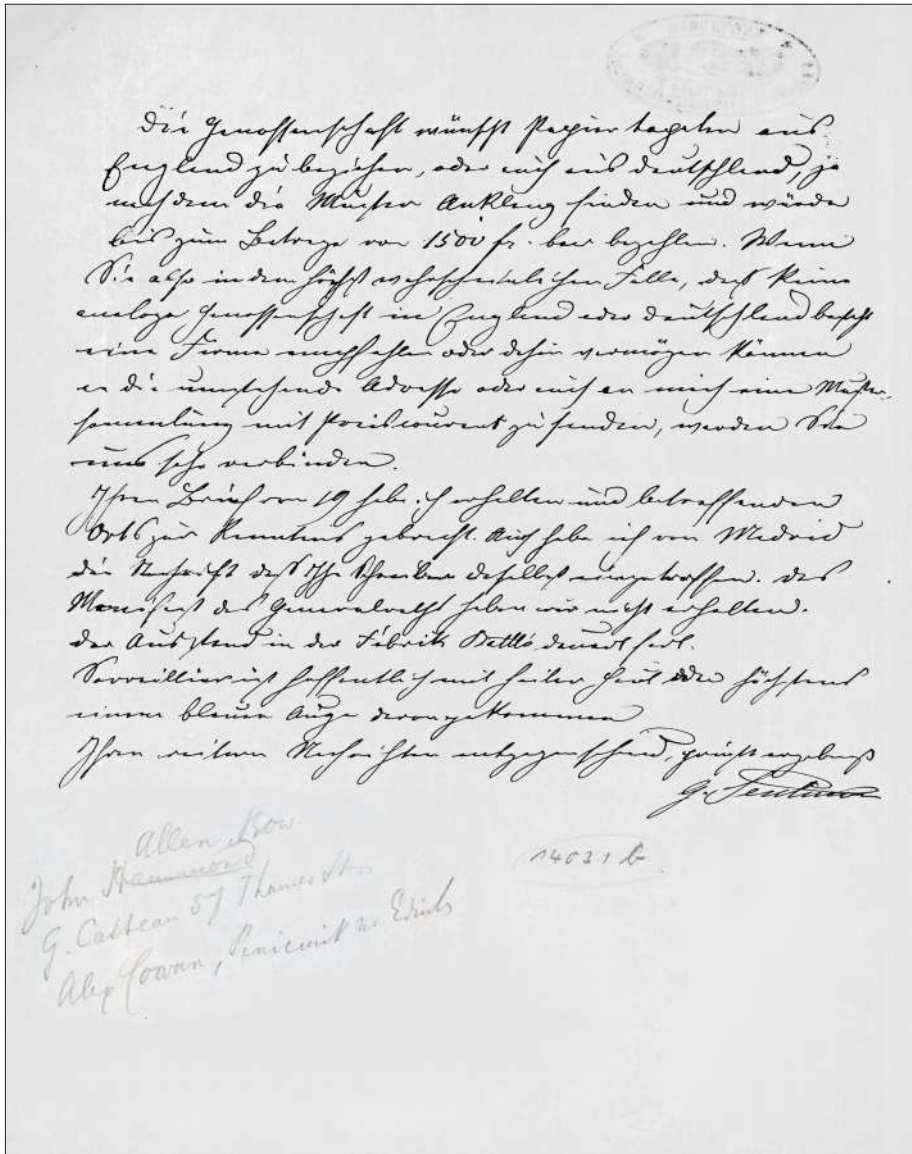 Die Genossenschaft wünscht Papiertapeten aus
England zu beziehen, oder auch aus Deutschland, je
nachdem die Muster Anklang finden und würde
bis zum Betrage von 1500 fr. baar bezahlen. Wenn
Sie also in dem höchst wahrscheinlichen Falle, daß keine
analoge Genossenschaft in England oder Deutschland besteht
eine Firma empfehlen oder dahin vermögen können
an die umstehende Adresse oder auch an mich eine Muster-
sammlung mit Preiscourant zu senden, werden Sie
uns sehr verbinden.
Ihren Brief vom 19 habe ich erhalten und betreffenden
Orts zur Kenntniß gebracht. Auch habe ich von Madrid
die Nachricht daß Ihr Schreiben daselbst eingetroffen. Das
Manifest des Generalraths haben wir nicht erhalten.
Der Ausstand in der Fabrik Batlló dauert fort.
Serraillier ist hoffentlich mit heiler Haut oder höchstens
einem blauen Auge davongekommen
Ihren weitern Nachrichten entgegensehend, grüßt ergebenst
G. Sentiñon
Allen, Bow
John Hammond
G. Catteau 57 Thames St
Alex Cowan, Penicuik nr Edinb
14031 b